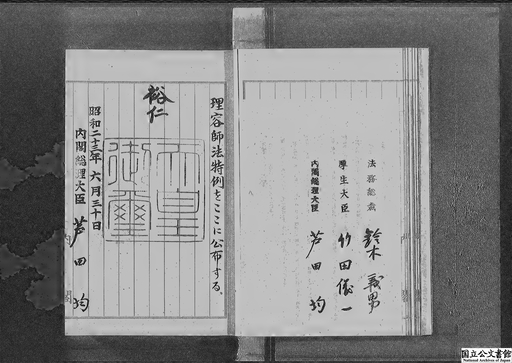 理容師法特例をここに公布する。
裕仁
天皇御璽
昭和二十三年六月三十日
内閣総理大臣 芦田均
法務総裁 鈴木義男
厚生大臣 竹田儀一
内閣総理大臣 芦田均
国立公文書館
National Archives of Japan